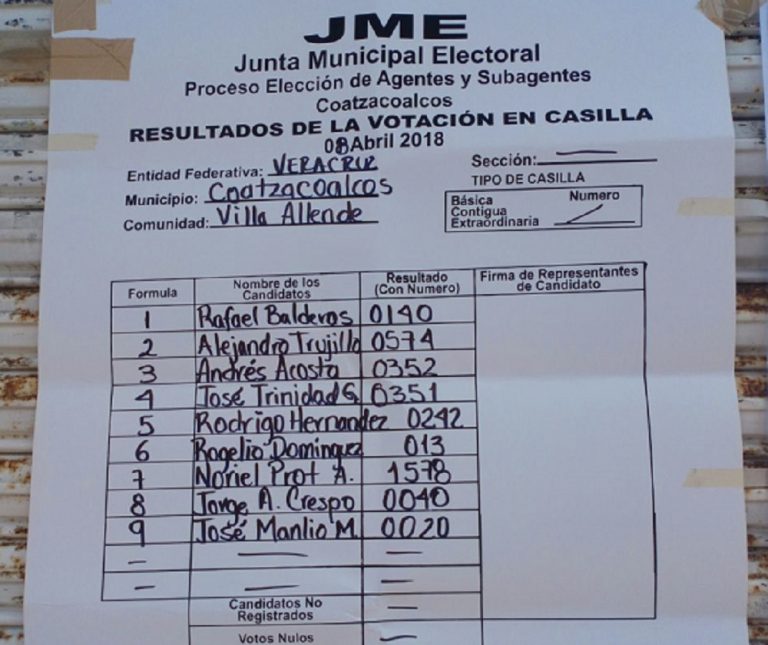 JME
Junta Municipal Electoral
Proceso Elección de Agentes y Subagentes
Coatzacoalcos
RESULTADOS DE LA VOTACIÓN EN CASILLA
08 Abril 2018
Entidad Federativa: VERACRUZ
Sección:
Municipio: Coatzacoalcos
TIPO DE CASILLA
Comunidad: Villa Allende
Básica Numero
Contigua
Extraordinaria
Formula Nombre de los Candidatos Resultado (Con Numero) Firma de Representantes de Candidato
1 Rafael Balderos 0140
2 Alejandro Trujillo 0574
3 Andrés Acosta 0352
4 José Trinidad G. 0351
5 Rodrigo Hernandez 0242
6 Rogelio Dominguez 013
7 Noriel Prot A. 1578
8 Jorge A. Crespo 0040
9 José Manlio M. 0020
— — —
— — —
Candidatos No Registrados —
Votos Nulos —